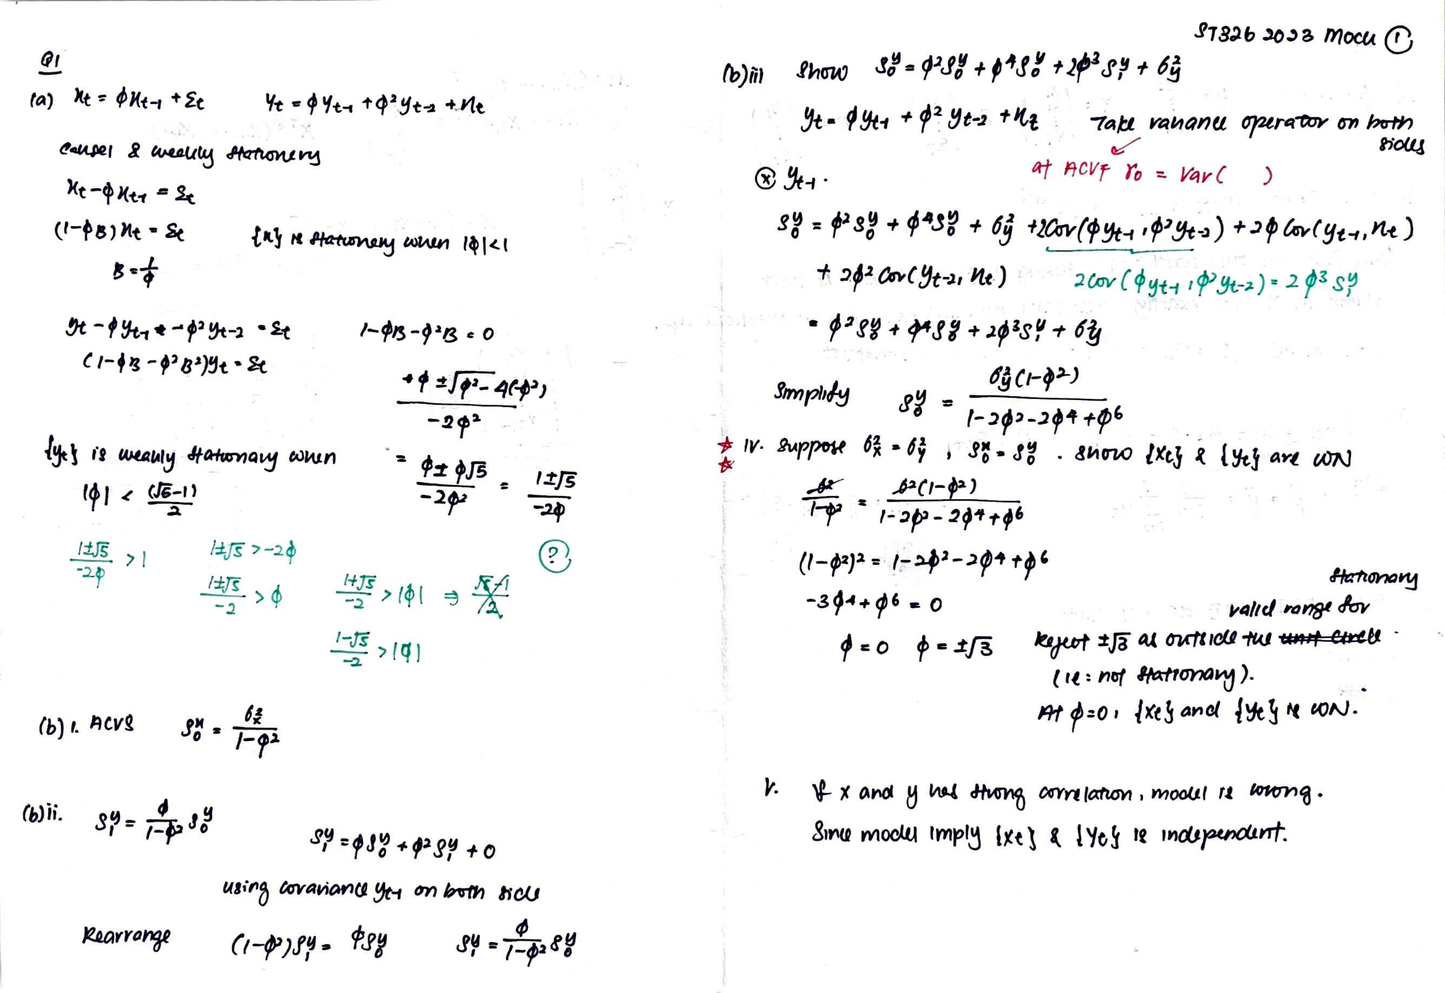 ST326 2023 Mock ①
Q1
(a) xt = φxt-1 + εt    yt = φyt-1 + φ²yt-2 + ηt
causel & weakly stationery
xt - φxt-1 = εt
(1-φB)xt = εt    {x} is stationery when |φ|<1
B = 1/φ
yt - φyt-1 - φ²yt-2 = εt    1-φB-φ²B = 0
(1-φB-φ²B²)yt = εt
+φ ± √φ²-4(-φ²) / -2φ²
{yt} is weakly stationary when    = φ±φ√5 / -2φ² = 1±√5 / -2φ
|φ| < (√5-1) / 2
1±√5 / -2φ > 1    1±√5 > -2φ    ?
1±√5 / -2 > φ    1+√5 / -2 > |φ| ⇒ √5-1 / 2
1-√5 / -2 > |φ|
(b) i. ACVS    γ0^x = σx² / 1-φ²
(b)ii. γ1^y = φ / 1-φ² γ0^y
γ1^y = φγ0^y + φ²γ1^y + 0
using covariance yt-1 on both side
Rearrange    (1-φ²)γ1^y = φγ0^y    γ1^y = φ / 1-φ² γ0^y
(b)iii    Show γ0^y = φ²γ0^y + φ⁴γ0^y + 2φ³γ1^y + σy²
yt = φyt-1 + φ²yt-2 + ηt    Take variance operator on both sides
at ACVF γ0 = Var( )
ⓧ yt-1.
γ0^y = φ²γ0^y + φ⁴γ0^y + σy² + 2Cov(φyt-1, φ²yt-2) + 2φCov(yt-1, ηt)
+ 2φ²Cov(yt-2, ηt)    2cov(φyt-1, φ²yt-2) = 2φ³γ1^y
= φ²γ0^y + φ⁴γ0^y + 2φ³γ1^y + σy²
Simplify    γ0^y = σy²(1-φ²) / 1-2φ²-2φ⁴+φ⁶
☆☆ iv. Suppose σx² = σy², γ0^x = γ0^y. Show {xt} & {yt} are WN
σ² / 1-φ² = σ²(1-φ²) / 1-2φ²-2φ⁴+φ⁶
(1-φ²)² = 1-2φ²-2φ⁴+φ⁶
-3φ⁴+φ⁶ = 0
φ=0    φ=±√3    Reject ±√3 as outside the unit circle stationary valid range for
(ie: not stationary).
At φ=0, {xt} and {yt} is WN.
v.    If x and y has strong correlation, model is wrong.
Since model imply {xt} & {yt} is independent.